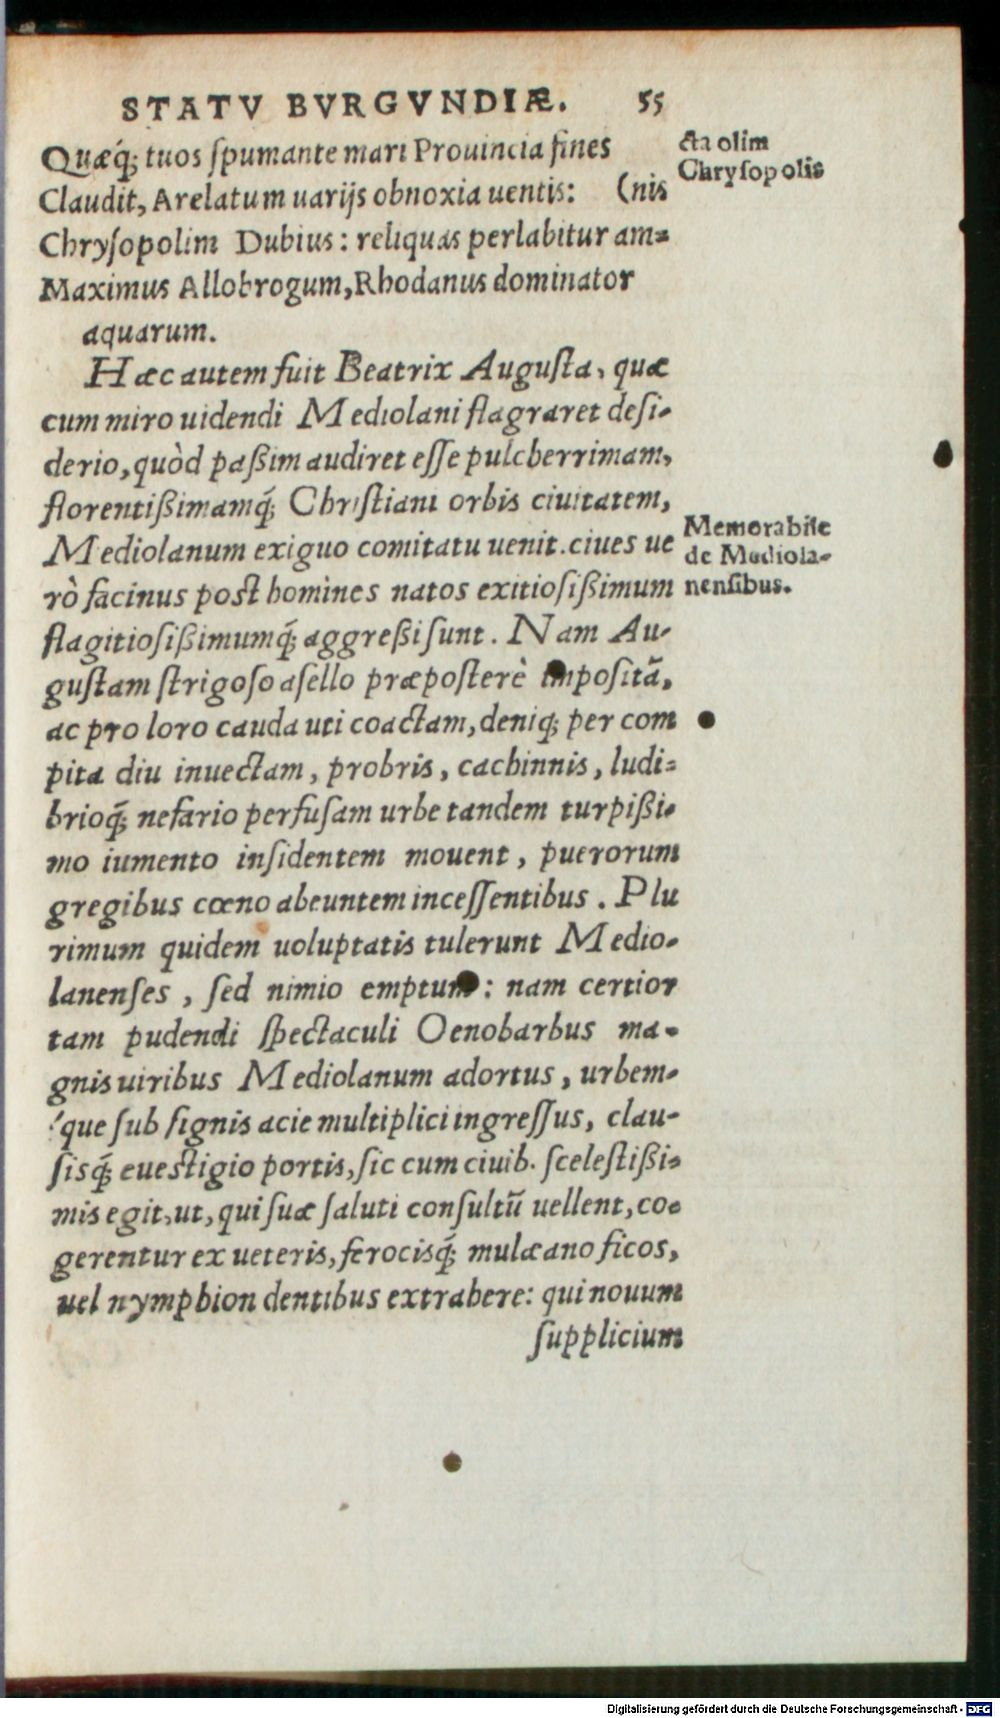 STATV BVRGVNDIÆ. 55
Quæq́; tuos ſpumante mari Prouincia fines
Claudit, Arelatum uarijs obnoxia uentis: (nis
Chryſopolim Dubius: reliquas perlabitur am=
Maximus Allobrogum, Rhodanus dominator
aquarum.
Hæc autem fuit Beatrix Auguſta, quæ
cum miro uidendi Mediolani flagraret deſi-
derio, quòd paßim audiret eſſe pulcherrimam,
florentißimamq́; Chriſtiani orbis ciuitatem,
Mediolanum exiguo comitatu uenit. ciues ue
rò facinus post homines natos exitioſißimum
flagitioſißimumq́; aggreßi ſunt. Nam Au-
guſtam ſtrigoſo aſello præpoſterè impoſitã,
ac pro loro cauda uti coactam, deniq; per com
pita diu inuectam, probris, cachinnis, ludi=
brioq́; nefario perfuſam urbe tandem turpißi-
mo iumento inſidentem mouent, puerorum
gregibus cœno abeuntem inceſſentibus. Plu
rimum quidem uoluptatis tulerunt Medio-
lanenſes, ſed nimio emptum: nam certior
tam pudendi ſpectaculi Oenobarbus ma-
gnis uiribus Mediolanum adortus, urbem-
que ſub ſignis acie multiplici ingreſſus, clau-
ſisq́; eueſtigio portis, ſic cum ciuib. ſceleſtißi-
mis egit, ut, qui ſuæ ſaluti conſultũ uellent, co-
gerentur ex ueteris, ferocisq́; mulæ ano ficos,
uel nymphion dentibus extrahere: qui nouum
ſupplicium
cta olim
Chryſopolis
Memorabile
de Mediola-
nenſibus.
Digitalisierung gefördert durch die Deutsche Forschungsgemeinschaft - DFG